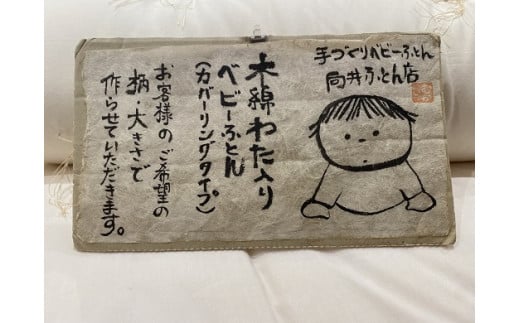 手づくりベビーふとん
向井ふとん店
木綿わた入り
ベビーふとん
(カバーリングタイプ)
お客様のご希望の
柄・大きさで
作らせていただきます。